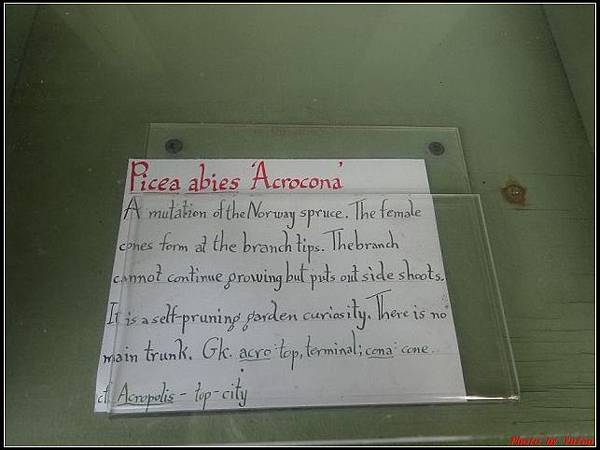 Picea abies 'Acrocona'
A mutation of the Norway spruce. The female
cones form at the branch tips. The branch
cannot continue growing but puts out side shoots.
It is a self-pruning garden curiosity. There is no
main trunk. Gk. acro: top, terminal; cona: cone.
cf. Acropolis - top-city
Photo by